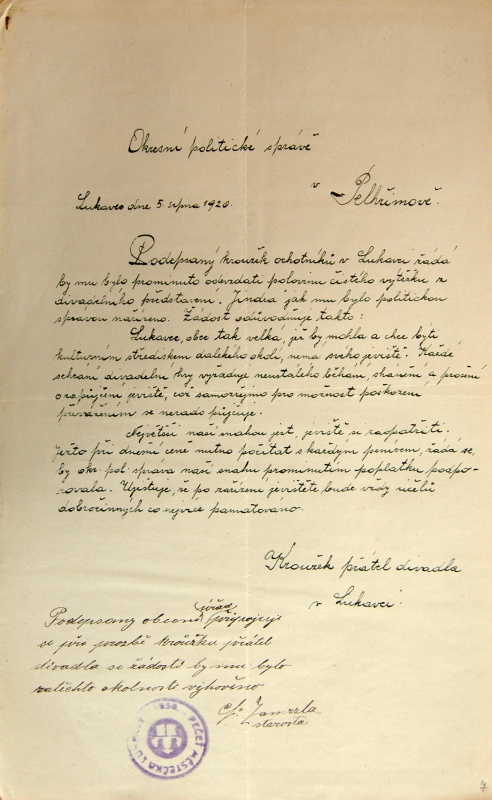 Okresní politické správě
v Pelhřimově.
Lukavec dne 5. srpna 1920.
Podepsaný kroužek ochotníků v Lukavci žádá
by mu bylo prominuto odevzdati polovinu čistého výtěžku z
divadelního představení. Jindra jak mu bylo politickou
správou nařízeno. Žádost odůvodňuje takto:
Lukavec, obec tak velká, jež by mohla a chce býti
kulturním střediskem dalekého okolí, nemá svého jeviště. Každé
sehrání divadelní hry vyžaduje neustálého běhání, shánění a prošení
o zapůjčení jeviště, což samozřejmo pro možnost poškození
převážením se nerado půjčuje.
Největší naší snahou jest, jeviště si zaopatřiti.
Ježto při dnešní ceně nutno počítat s každým penízem, žádá se,
by okr. pol. správa naši snahu prominutím poplatku podpo-
rovala. Ujišťuje, že po zařízení jeviště bude vždy účelů
dobročinných co nejvíce pamatováno.
Kroužek přátel divadla
v Lukavci.
Podepsaný obecní úřad připojuje
se při prosbě kroužku přátel
divadla se žádostí by mu bylo
za těchto okolností vyhověno
starosta
PEČEŤ MĚSTEČKA
7